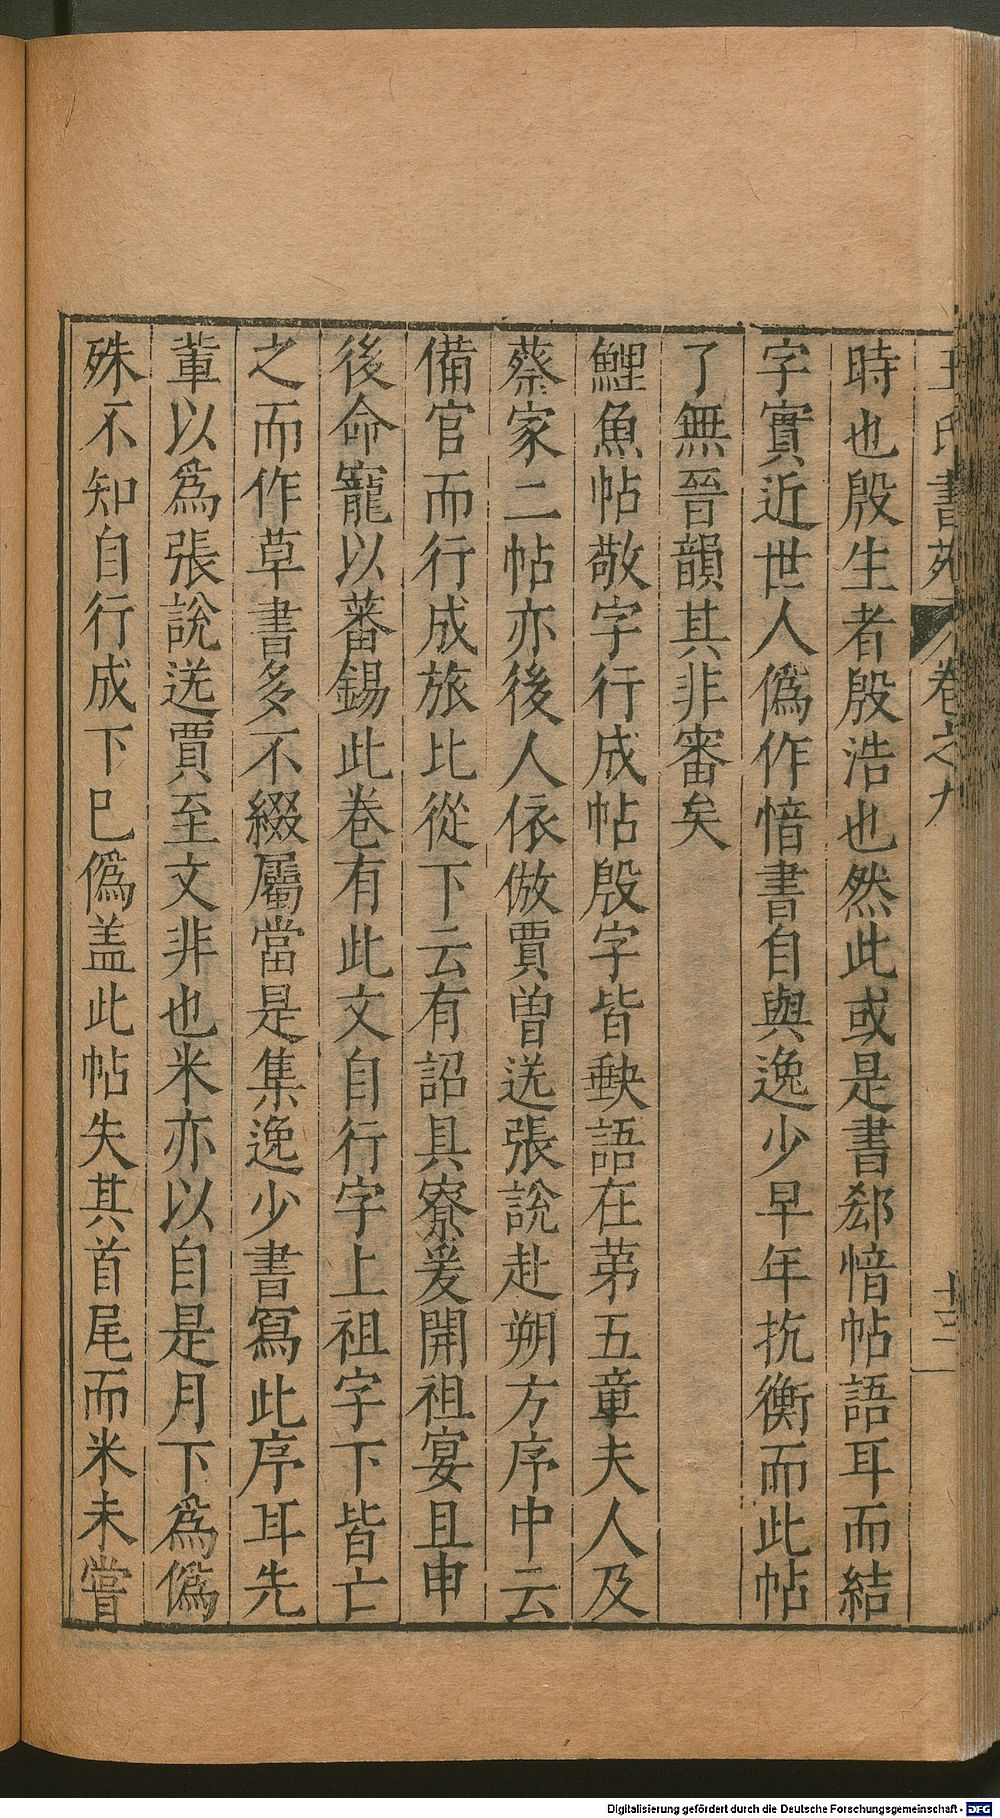 王氏書苑 卷之九 十三
時也殷生者殷浩也然此或是書郄愔帖語耳而結
字實近世人僞作愔書自與逸少早年抗衡而此帖
了無晉韻其非審矣
鯉魚帖敬字行成帖殷字皆缺語在苐五章夫人及
蔡家二帖亦後人依倣賈曽送張說赴朔方序中云
備官而行成旅比從下云有詔具寮爰開祖宴且申
後命寵以蕃錫此卷有此文自行字上祖字下皆亡
之而作草書多不綴屬當是集逸少書寫此序耳先
軰以爲張說送賈至文非也米亦以自是月下爲僞
殊不知自行成下巳僞盖此帖失其首尾而米未嘗
Digitalisierung gefördert durch die Deutsche Forschungsgemeinschaft - DFG